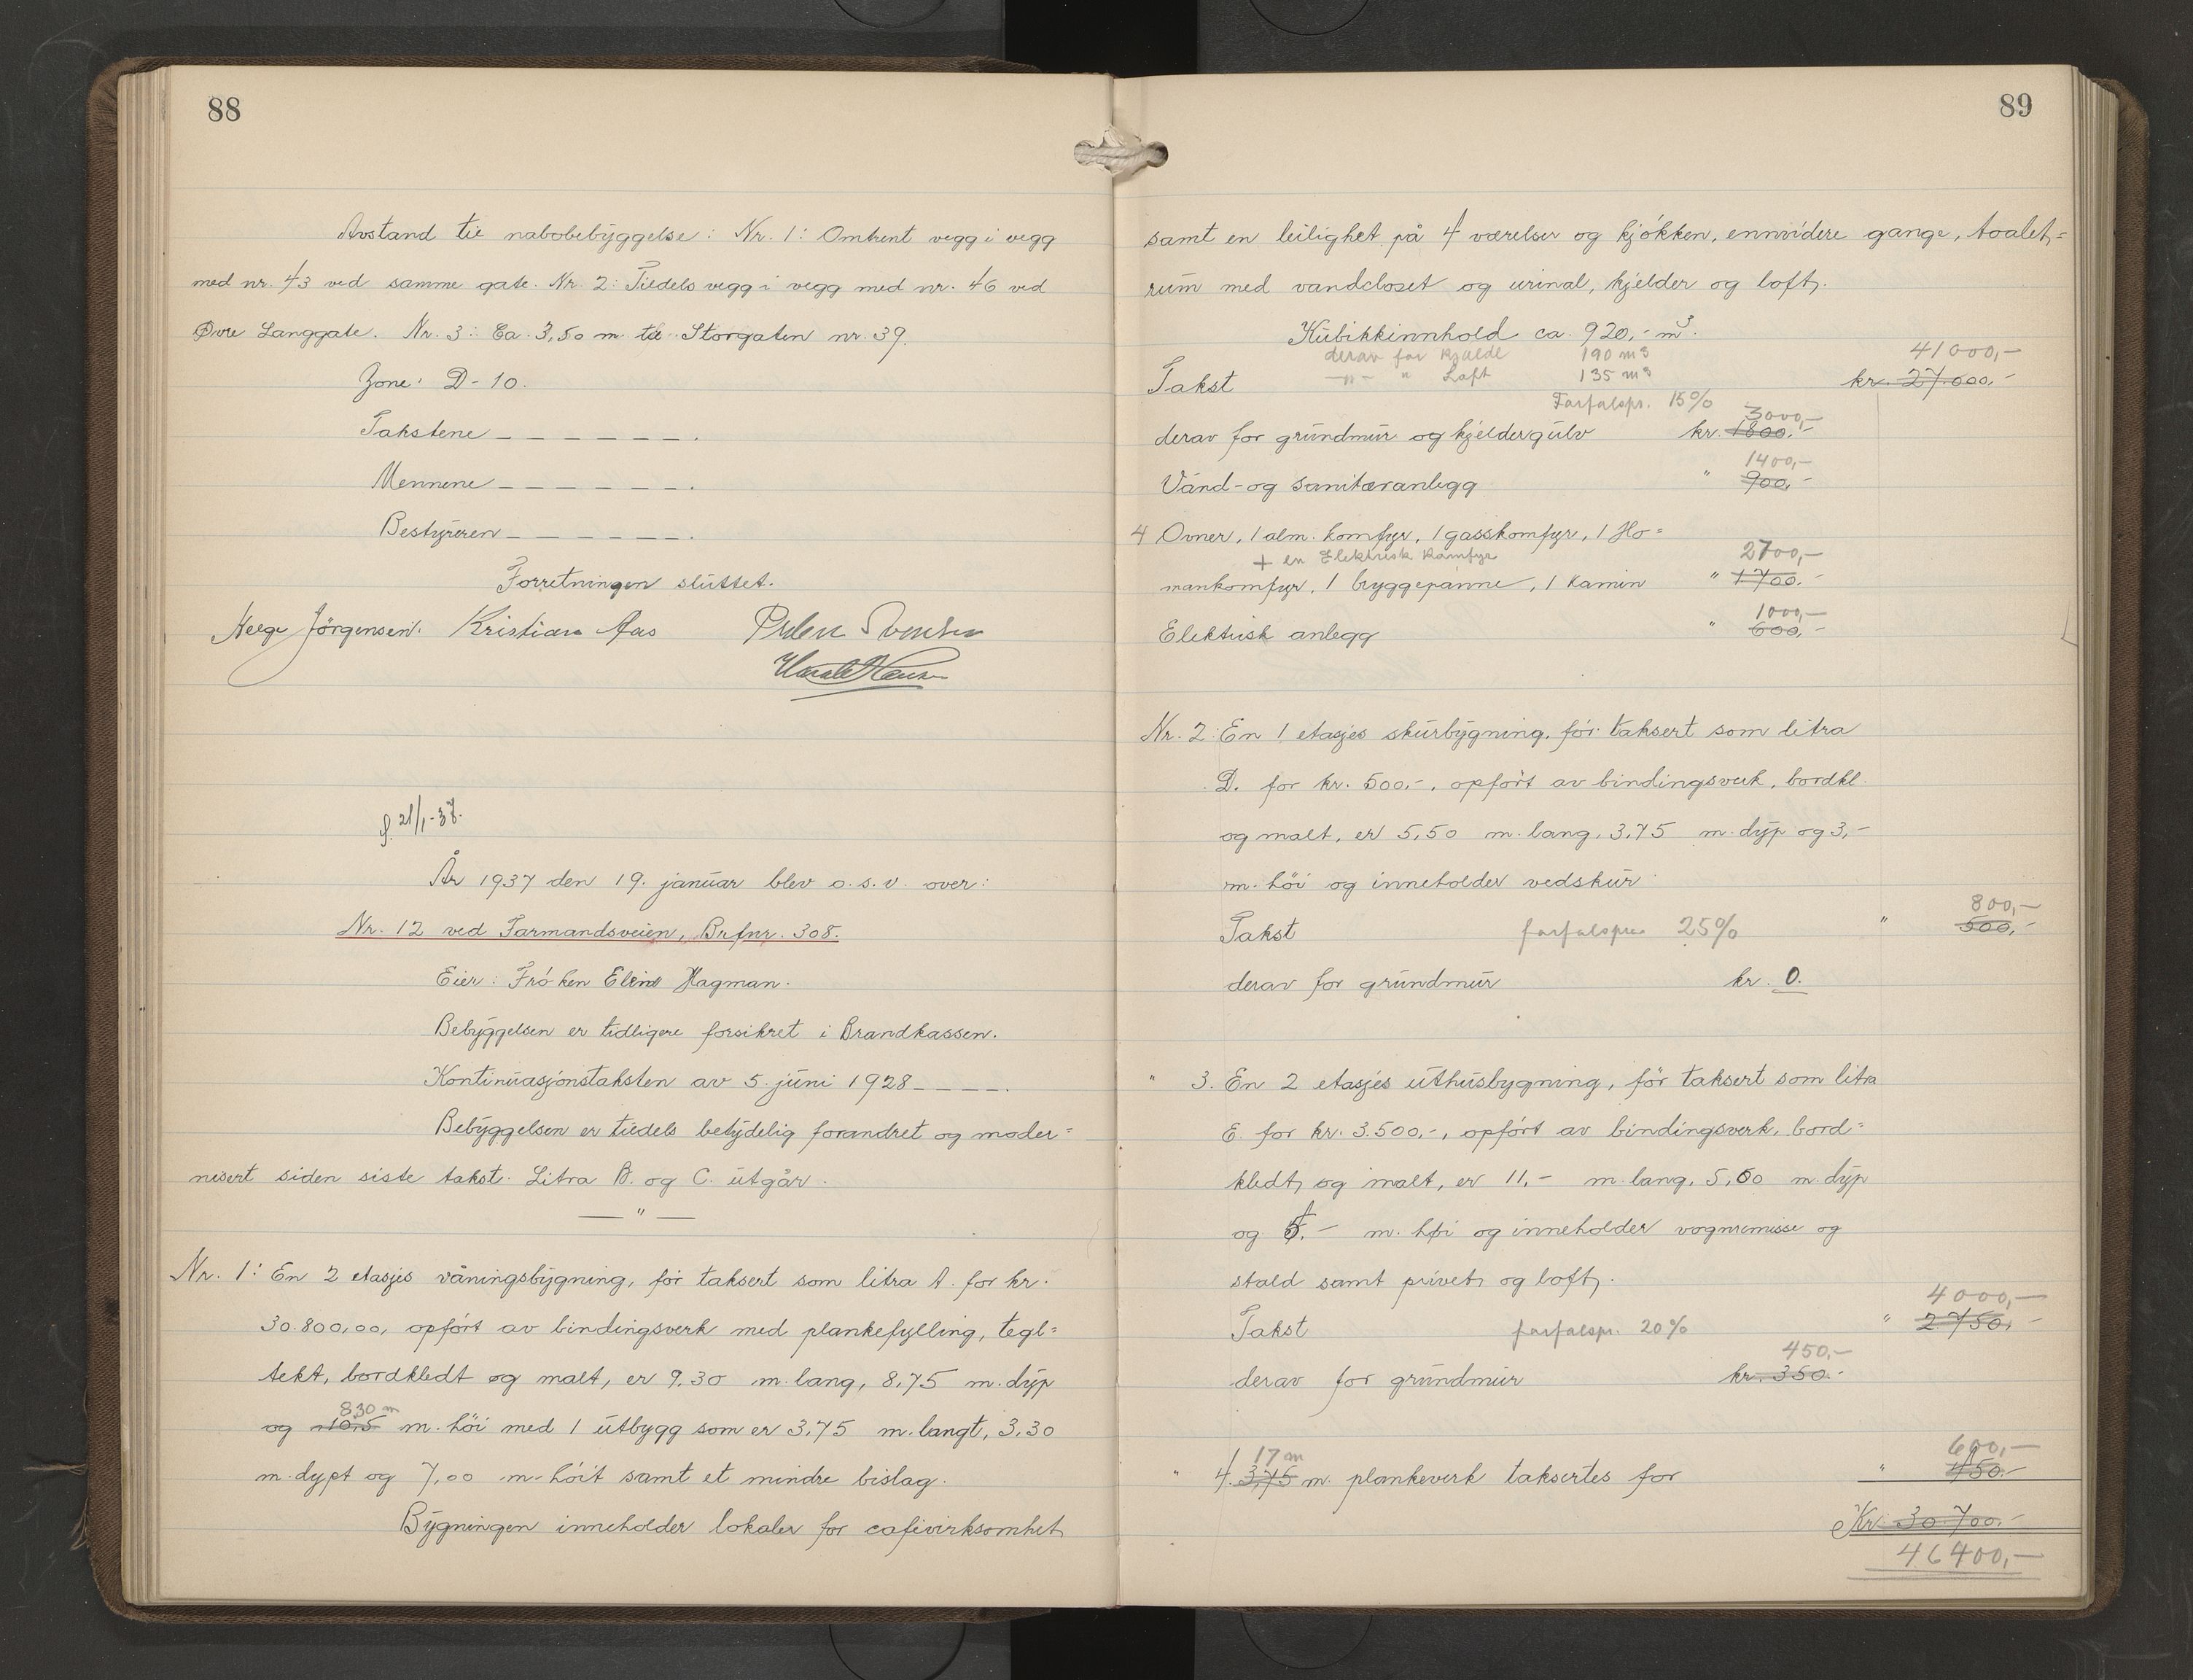 88
Avstand til nabobebyggelse: Nr. 1: Omtrent vegg i vegg
med nr. 43 ved samme gate. Nr. 2: Tildels vegg i vegg med nr. 46 ved
Øvre Langgate. Nr. 3: Ca. 3,50 m. til Storgaten nr. 39.
Zone: D-10.
Takstene _ _ _ _ _ _ _.
Mennene _ _ _ _ _ _ _.
Bestyreren _ _ _ _ _ _ _.
Forretningen sluttet.
Helge Jörgensen. Kristian Aas
Harald Hansen
f. 21/1-37.
År 1937 den 19. januar blev o.s.v. over:
Nr. 12 ved Farmandsveien, Brfnr. 308.
Eier: Frøken Eline Hagman.
Bebyggelsen er tidligere forsikret i Brandkassen.
Kontinuasjonstaksten av 5. juni 1928 _ _ _ _.
Bebyggelsen er tildels betydelig forandret og moder=
nisert siden siste takst. Litra B. og C. utgår.
— " —
Nr. 1: En 2 etasjes våningsbygning, før taksert som litra A. for kr.
30.800,00, opført av bindingsverk med plankefylling, tegl=
tekt, bordkledt og malt, er 9.30 m. lang, 8,75 m. dyp
830 m
og 10.5 m. høi med 1 utbygg som er 3,75 m. langt, 3,30
m. dypt og 7,00 m. høit samt et mindre bislag.
Bygningen inneholder lokaler for cafévirksomhet
89
samt en leilighet på 4 værelser og kjøkken, ennvidere gange, toalet=
rum med vandcloset og urinal, kjelder og loft.
Kubikkinnhold ca. 920,- m3.
derav for Kjælde 190 m3
41000,-
—"— " Loft 135 m3
Takst kr. 27.000,-
Forfalspr. 15%
3000,-
derav for grundmur og kjeldergulv kr. 1800,-
1400,-
Vand- og sanitæranlegg " 900,-
4 Ovner, 1 alm. komfyr, 1 gasskomfyr, 1 Ho=
+ en Elektrisk Komfyr
2700,-
mankomfyr, 1 bryggepanne, 1 kamin " 1700.-
1000,-
Elektrisk anlegg " 600,-
Nr. 2: En 1 etasjes skurbygning, før taksert som litra
D. for kr. 500.-, opført av bindingsverk, bordkl.
og malt, er 5,50 m. lang, 3,75 m. dyp og 3,-
m. høi og inneholder vedskur.
800,-
Takst forfalspr. 25% " 500,-
derav for grundmur kr. 0.
" 3. En 2 etasjes uthusbygning, før taksert som litra
E. for kr. 3.500,-, opført av bindingsverk, bord=
kledt og malt, er 11,- m. lang, 5,60 m. dyp
og m. høi og inneholder vognremisse og
stald samt privet og loft.
4000,-
Takst forfalspr. 20% " 2.750,-
450,-
derav for grundmur kr. 350.-
17 m
600,-
" 4. 375 m. plankeverk taksertes for " 450.-
Kr. 30.700.-
46400,-